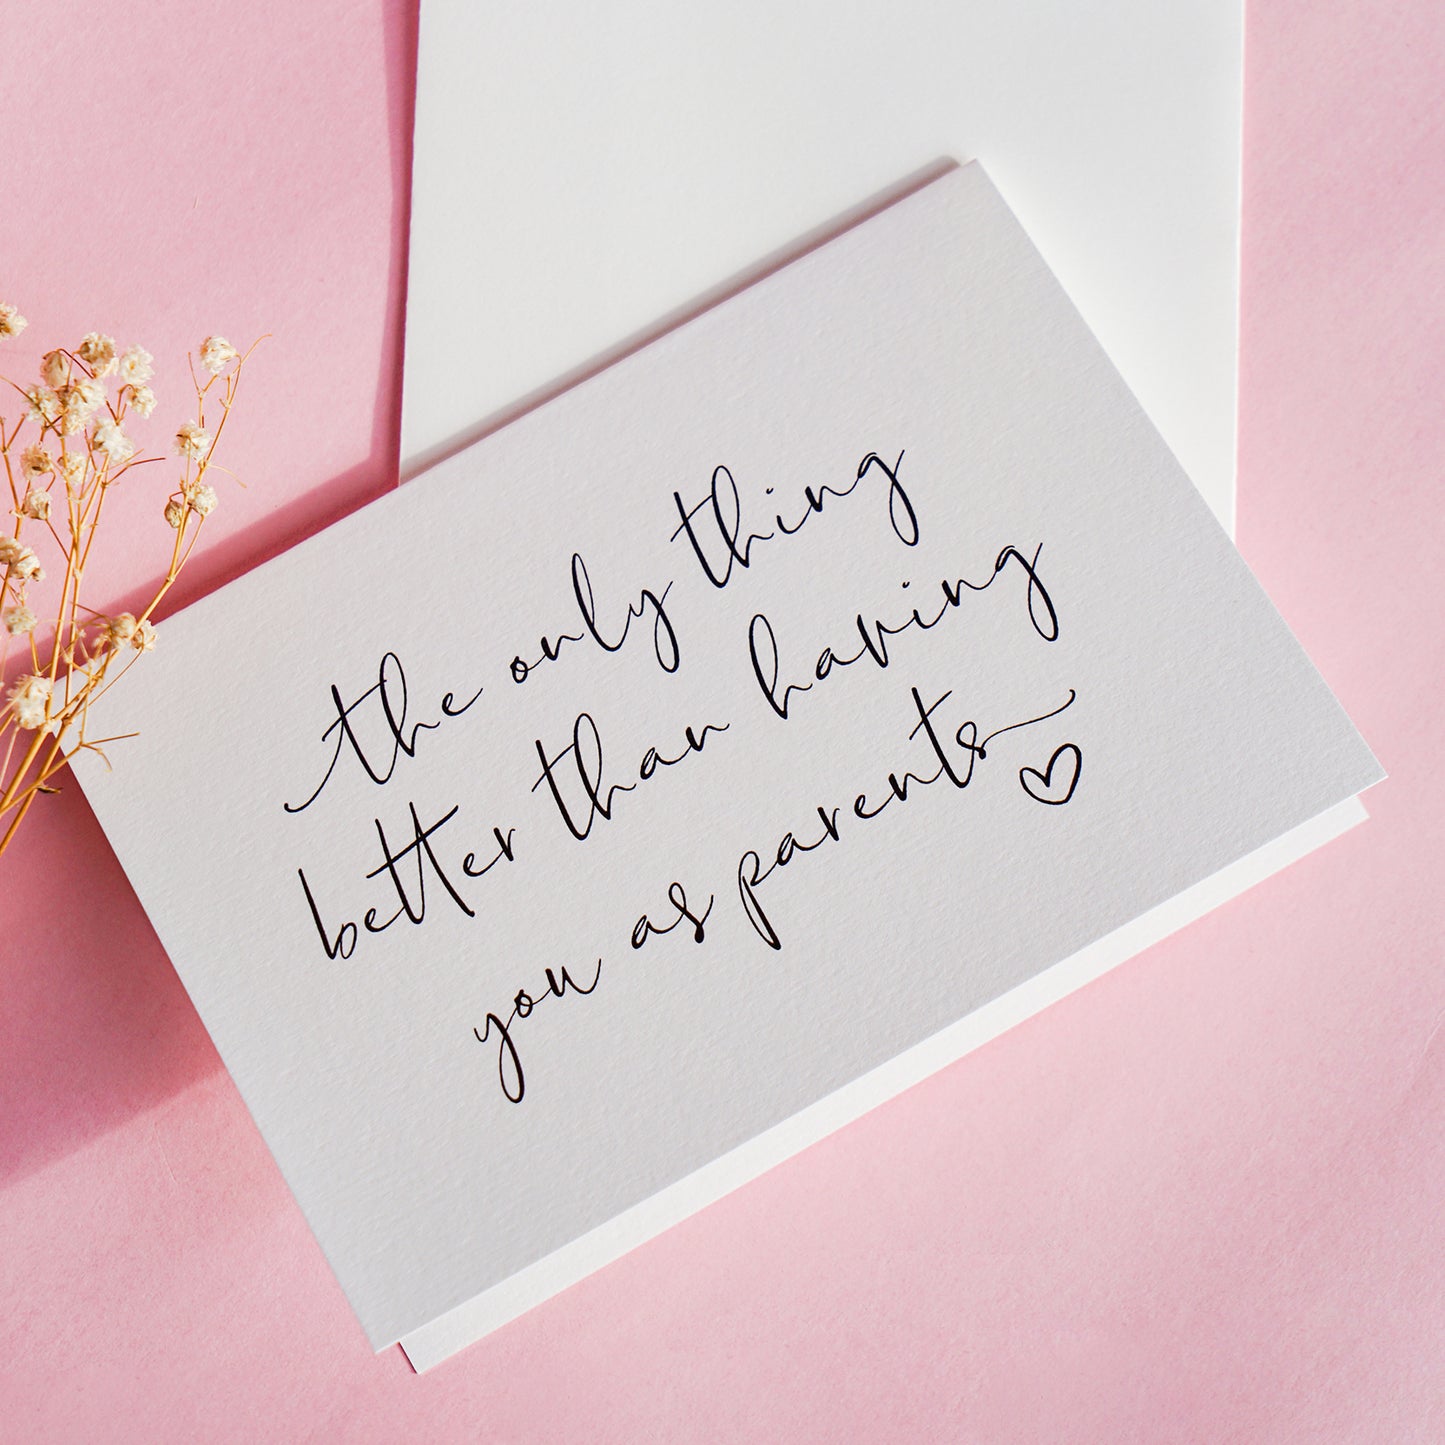 the only thing
better than having
you as parents